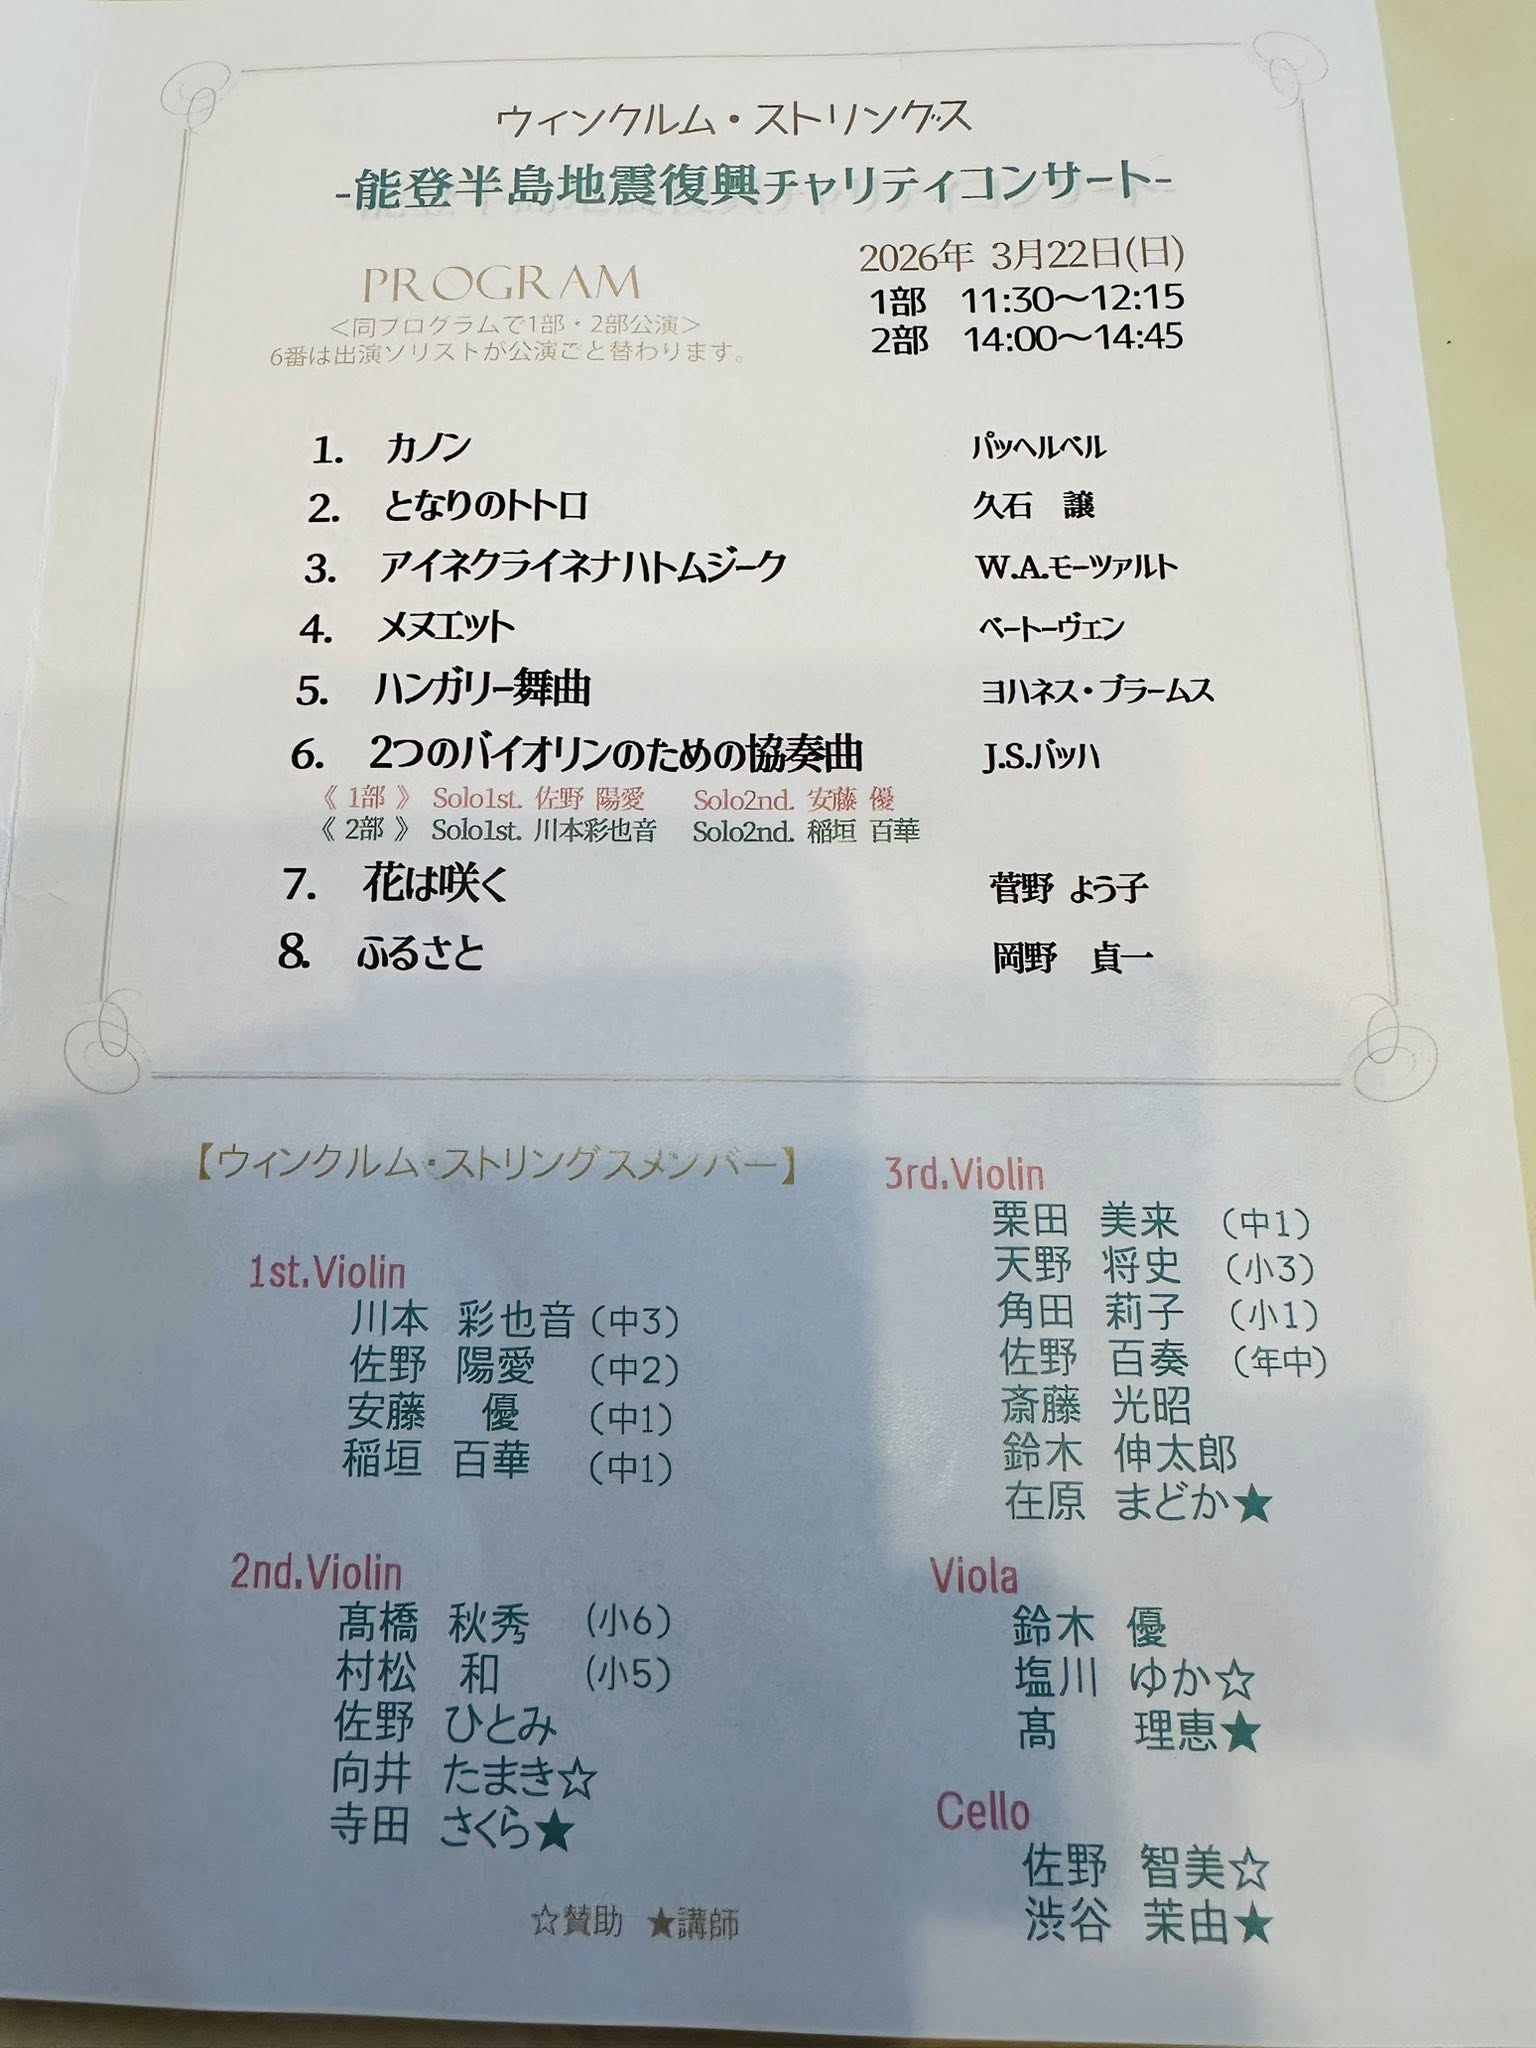 ウィンクルム・ストリングス
-能登半島地震復興チャリティコンサート-
PROGRAM
<同プログラムで1部・2部公演>
6番は出演ソリストが公演ごと替わります。
2026年 3月22日(日)
1部 11:30～12:15
2部 14:00～14:45
1. カノン パッヘルベル
2. となりのトトロ 久石 譲
3. アイネクライネナハトムジーク W.A.モーツァルト
4. メヌエット ベートーヴェン
5. ハンガリー舞曲 ヨハネス・ブラームス
6. 2つのバイオリンのための協奏曲 J.S.バッハ
《 1部 》 Solo1st. 佐野 陽愛 Solo2nd. 安藤 優
《 2部 》 Solo1st. 川本彩也音 Solo2nd. 稲垣 百華
7. 花は咲く 菅野 よう子
8. ふるさと 岡野 貞一
【ウィンクルム・ストリングスメンバー】
1st.Violin
川本 彩也音 (中3)
佐野 陽愛 (中2)
安藤 優 (中1)
稲垣 百華 (中1)
2nd.Violin
髙橋 秋秀 (小6)
村松 和 (小5)
佐野 ひとみ
向井 たまき☆
寺田 さくら★
☆賛助 ★講師
3rd.Violin
栗田 美来 (中1)
天野 将史 (小3)
角田 莉子 (小1)
佐野 百奏 (年中)
斎藤 光昭
鈴木 伸太郎
在原 まどか★
Viola
鈴木 優
塩川 ゆか☆
髙 理恵★
Cello
佐野 智美☆
渋谷 茉由★